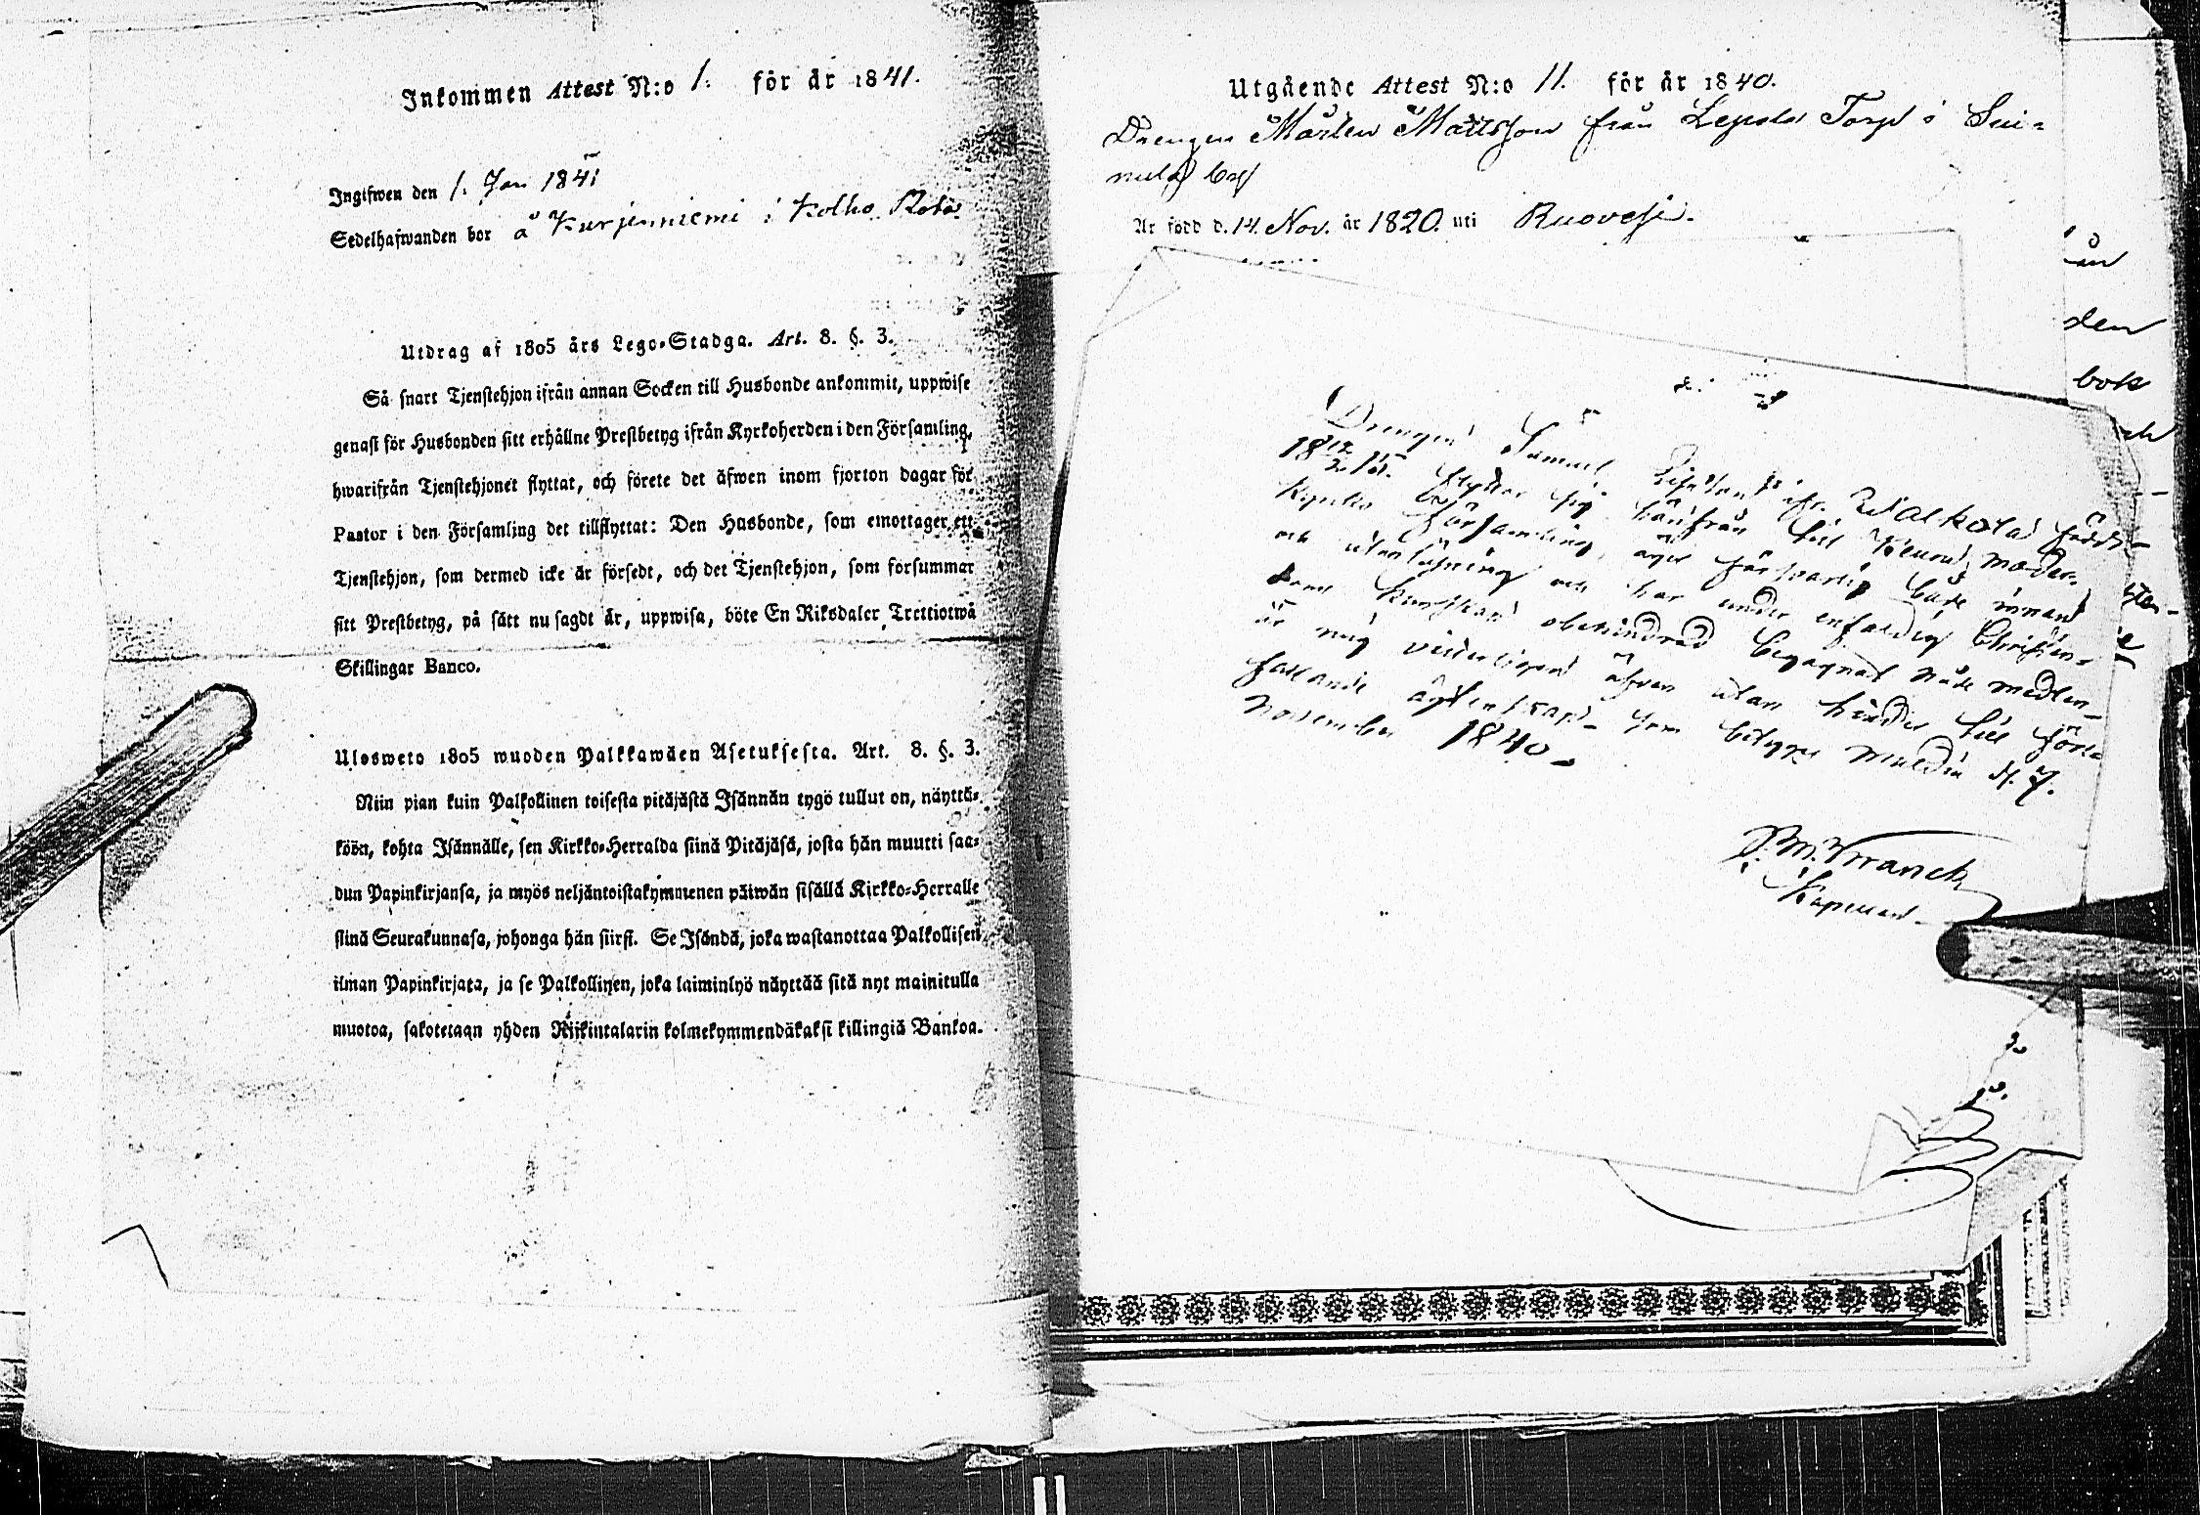 Inkommen Attest N:o 1. för år 1841.
Ingifwen den 1. Jan 1841
Sedelhafwanden bor å Kurjenniemi i Kolho
Utdrag af 1805 års Lego-Stadga. Art. 8. §. 3.
Så snart Tjenstehjon ifrån annan Socken till Husbonde ankommit, uppwise
genast för Husbonden sitt erhållne Prestbetyg ifrån Kyrkoherden i den Församling,
hwarifrån Tjenstehjonet flyttat, och förete det äfwen inom fjorton dagar för
Pastor i den Församling det tillflyttat: Den Husbonde, som emottager ett
Tjenstehjon, som dermed icke är försedt, och det Tjenstehjon, som försummar
sitt Prestbetyg, på sätt nu sagdt är, uppwisa, böte En Riksdaler Trettiotwå
Skillingar Banco.
Ulosweto 1805 wuoden Palkkawäen Asetuksesta. Art. 8. §. 3.
Niin pian kuin Palkollinen toisesta pitäjästä Isännän tygö tullut on, näyttä-
köön, kohta Isännälle, sen Kirkko-Herralda siinä Pitäjäsä, josta hän muutti saa-
dun Papinkirjansa, ja myös neljäntoistakymmenen päiwän sisällä Kirkko-Herralle
siinä Seurakunnasa, johonga hän siirsi. Se Isändä, joka wastanottaa Palkollisen
ilman Papinkirjata, ja se Palkollinen, joka laiminlyö näyttää sitä nyt mainitulla
muotoa, sakotetaan yhden Riikintalarin kolmekymmendäkaksi killingiä Bankoa.
Utgående Attest N:o 11. för år 1840.
Drengen Mårten Mattsson från Lepola Torp i Sui-
nula by
Är född d. 14. Nov. år 1820. uti Ruovesi.
Drengen Samuel Walkola född
18 flyttar sig härifrån till Keuru moder-
Kyrko Församling, äger försvarlig både innan
och utanläsning och har under enfaldig Christen-
doms kunskap obehindrad begagnat nåde medlen
är mig veterligen äfven utan hinder till före
fallande ägtenskap som betygas
November 1840
Kapellan
ån
den
bok